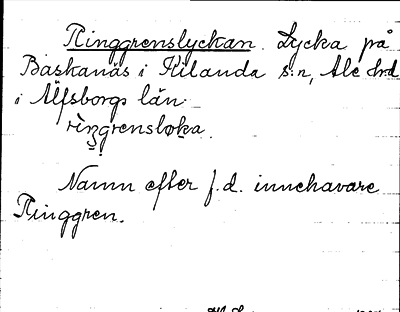 Ringgrenslyckan. Lycka på
Baskanäs i Kilanda s:n, Ale hrd
i Älfsborgs län.
rìngrensløka.
Namn efter f.d. innehavare
Ringgren.